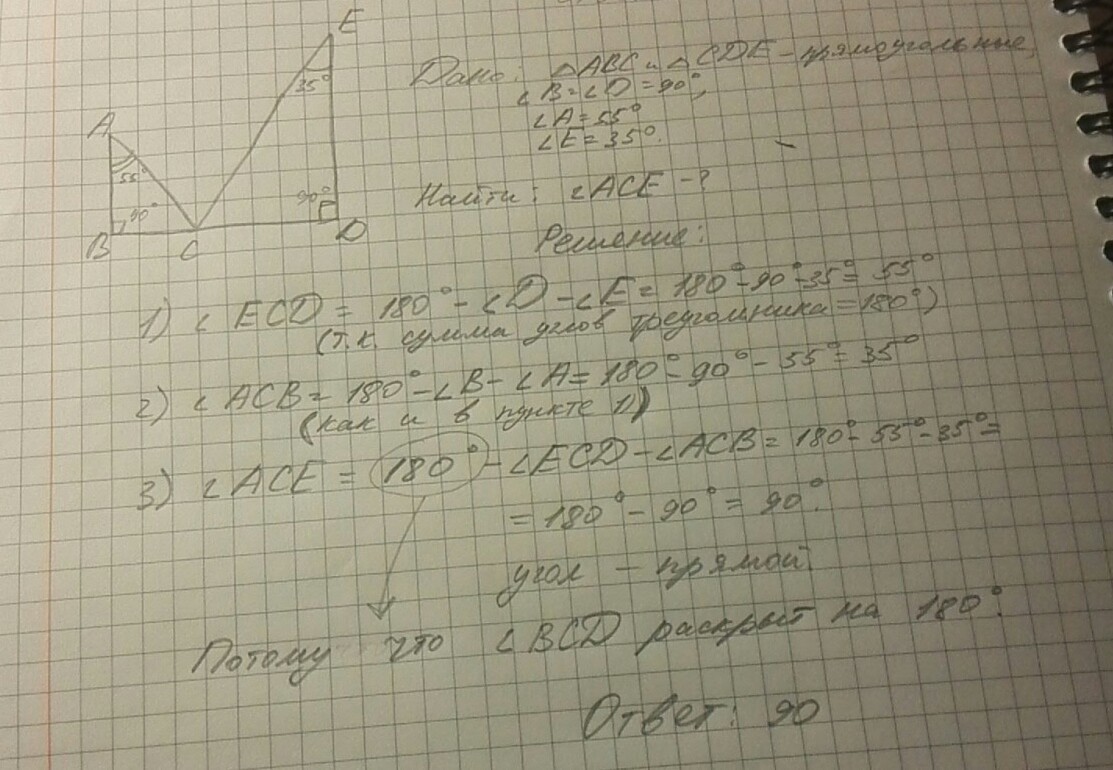 E
35°
A
55°
90°
90°
B
C
D
Дано: △ABC и △CDE - прямоугольные,
∠B=∠D=90°,
∠A=55°
∠E=35°.
Найти: ∠ACE -?
Решение:
1) ∠ECD = 180°-∠D-∠E = 180°-90°-35°= 55°
(т.к. сумма углов треугольника = 180°)
2) ∠ACB = 180°-∠B-∠A = 180°-90°-55°= 35°
(как и в пункте 1))
3) ∠ACE = 180°-∠ECD-∠ACB = 180°-55°-35°=
= 180°-90°= 90°.
угол - прямой.
Потому что ∠BCD раскрыт на 180°.
Ответ: 90